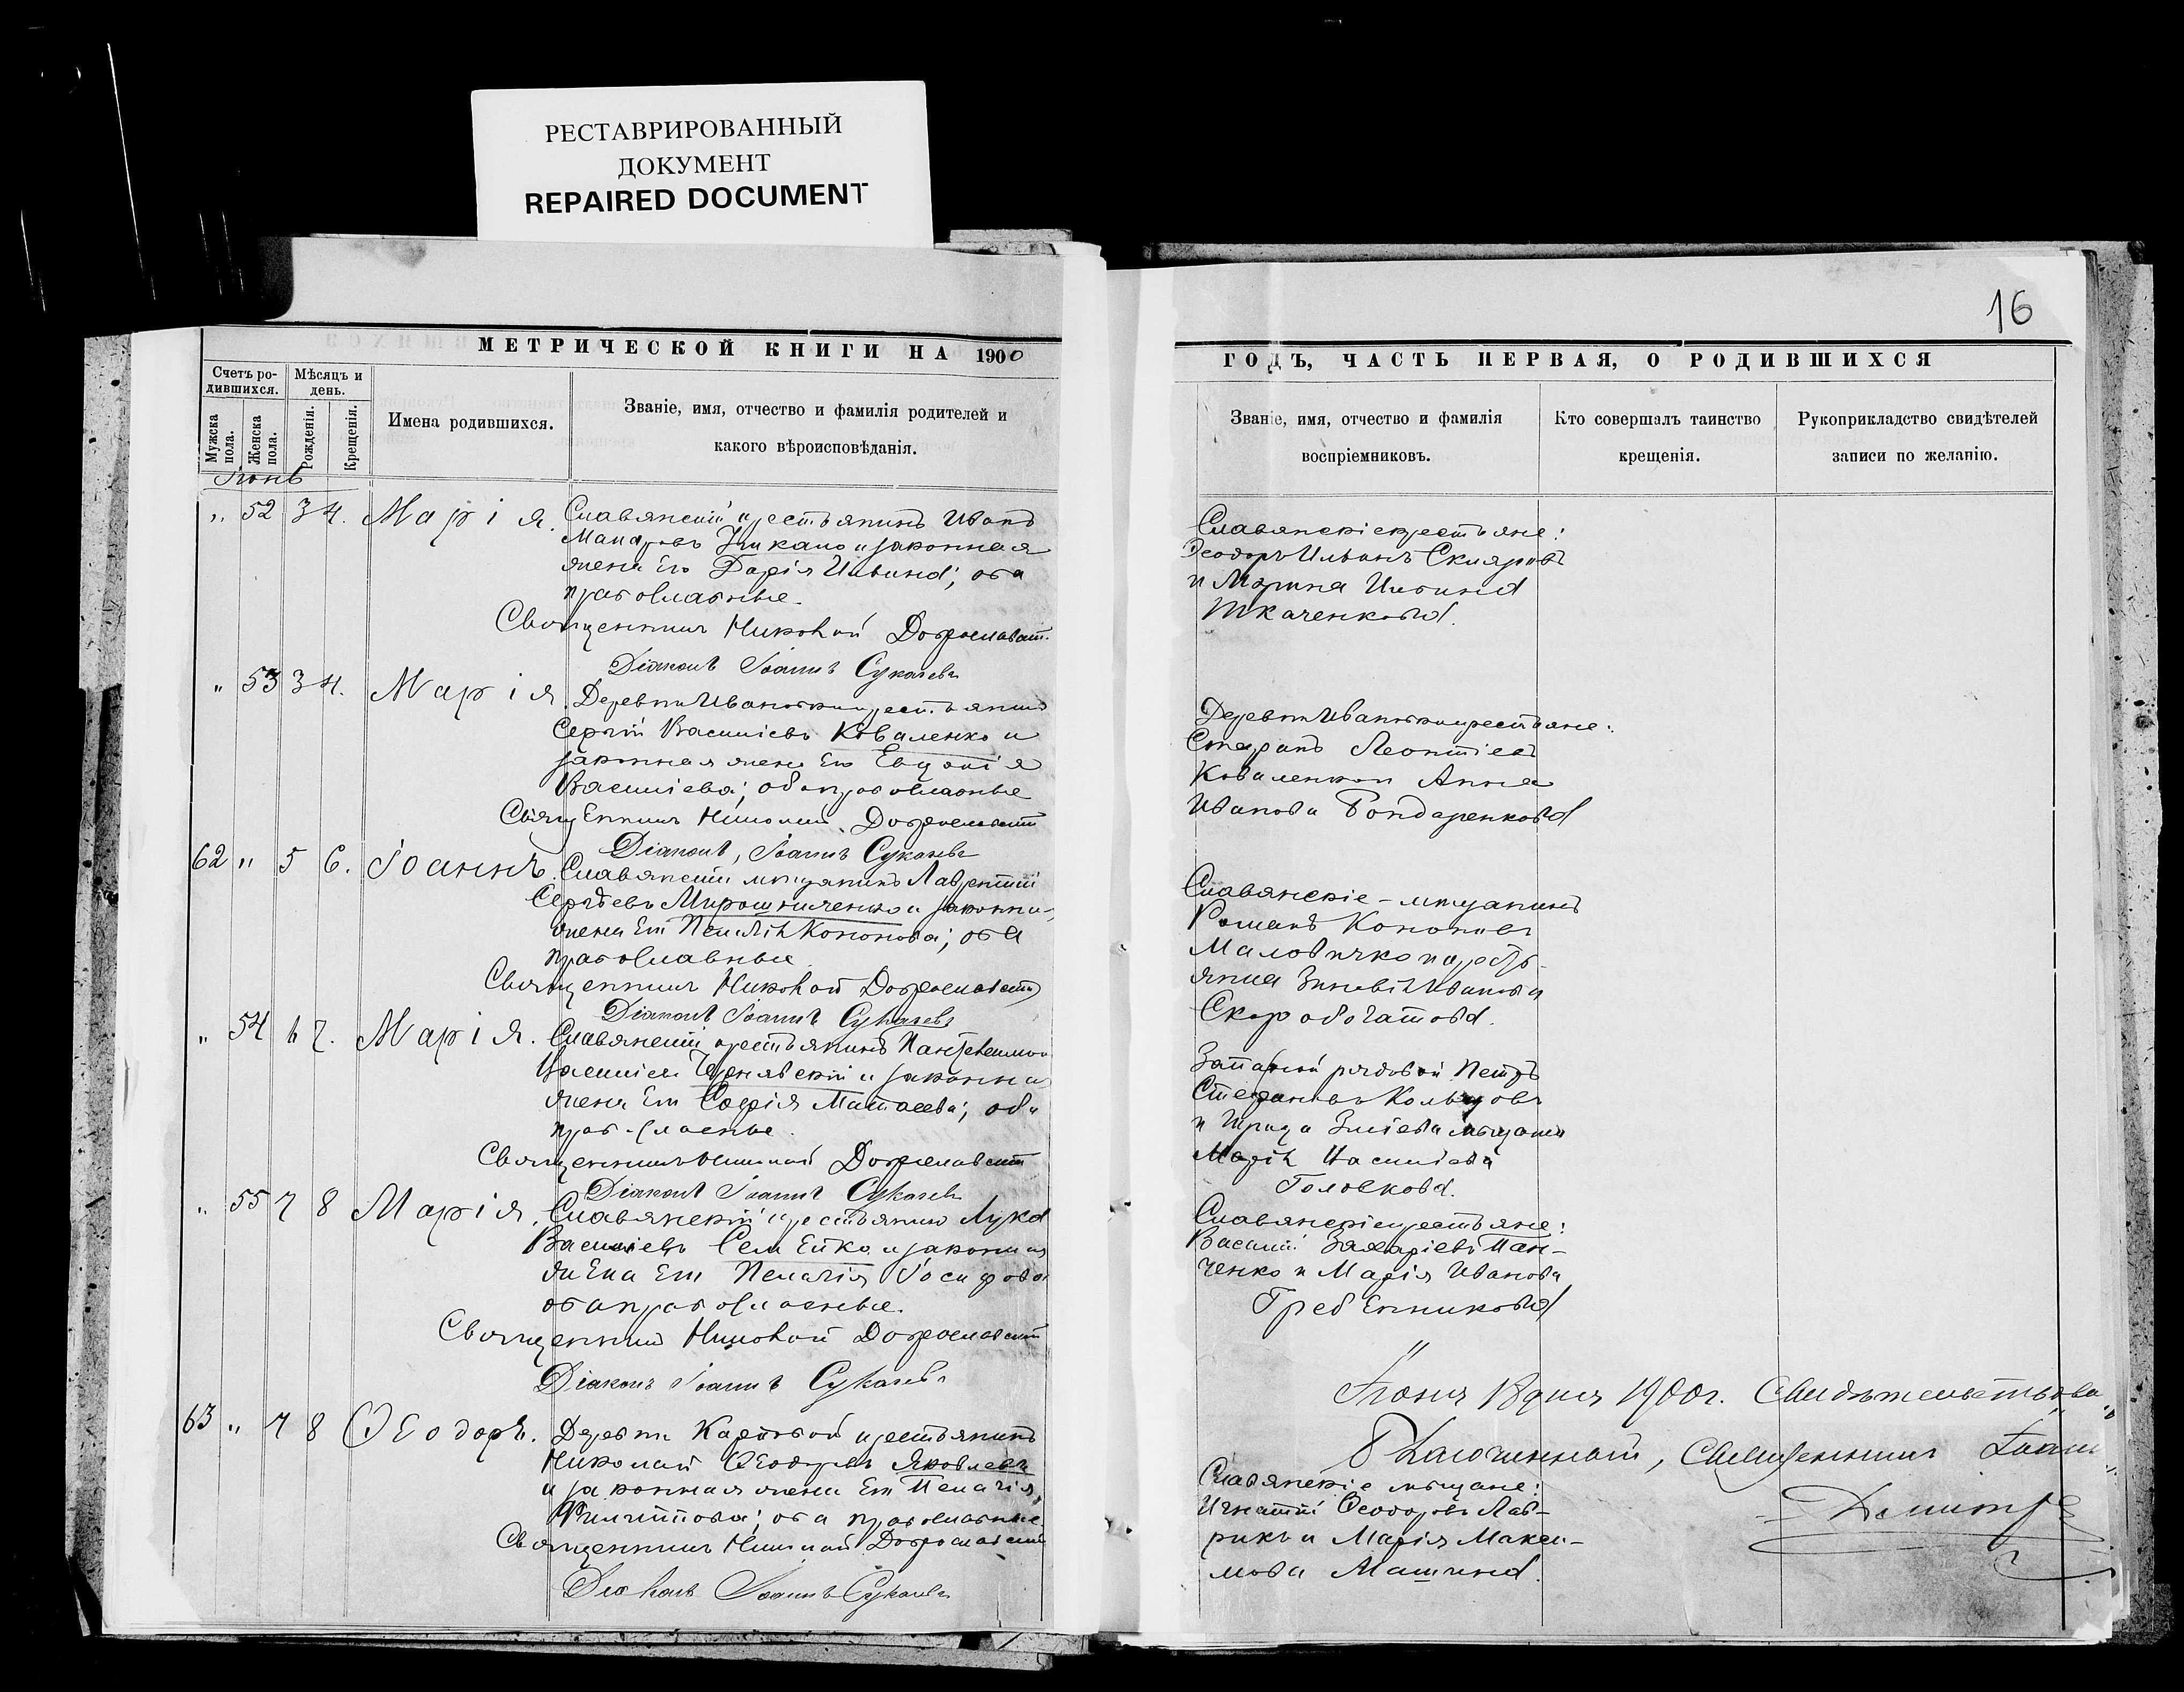 РЕСТАВРИРОВАННЫЙ
ДОКУМЕНТ
REPAIRED DOCUMENT
16
МЕТРИЧЕСКОЙ КНИГИ НА 1900
Счетъ ро-
дившихся.
Мѣсяцъ и
день.
Мужска
пола.
Женска
пола.
Рожденія.
Крещенія.
Имена родившихся.
Званіе, имя, отчество и фамилія родителей и
какого вѣроисповѣданія.
Іюнь
„ 52 3 4. Марія. Славянскій крестьянинъ Иванъ
законная
жена его Дарія Ильина; оба
православные.
Священникъ Николай Доброславскій
Діаконъ Іоаннъ Сукачевъ
„ 53 3 4. Марія. Деревни Ивановки крестьянинъ
Сергій Василіевъ Коваленко и
законная жена его Евдокія
Василіева; оба православные
Священникъ Николай Доброславскій
Діаконъ, Іоаннъ Сукачевъ
62 „ 5 6. Іоаннъ. Славянскій мѣщанинъ Лаврентій
Сергѣевъ Мирошниченко и законна-
жена его Пелагія Кононова; оба
православные.
Священникъ Николай Доброславскій
Діаконъ Іоаннъ Сукачевъ
„ 54 6 7. Марія. Славянскій крестьянинъ Пантелеимон
Василіевъ Чернявскій и законна
жена его Софія Матѳеева; оба
православные.
Священникъ Николай Доброславскій
Діаконъ Іоаннъ Сукачевъ
„ 55 7 8 Марія. Славянскій крестьянинъ Лука
Василіевъ Семейко и законная
жена его Пелагія Іосифова
оба православные.
Священникъ Николай Доброславскій
Діаконъ Іоаннъ Сукачевъ
63 „ 7 8 Ѳеодоръ. Деревни Карповой крестьянинъ
Николай Ѳеодоровъ Яковлевъ
и законная жена его Пелагія
Филиппова; оба православные.
Священникъ Николай Доброславскій
Діаконъ Іоаннъ Сукачевъ
ГОДЪ, ЧАСТЬ ПЕРВАЯ, О РОДИВШИХСЯ
Званіе, имя, отчество и фамилія
воспріемниковъ.
Кто совершалъ таинство
крещенія.
Рукоприкладство свидѣтелей
записи по желанію.
Славянскіе крестьяне:
Ѳеодоръ Ильинъ Скляровъ
и Марина Ильина
Ткаченкова.
Деревни Ивановки крестьяне:
Леонтіевъ
Коваленко и Анна
Иванова Бондаренкова
Славянскіе – мѣщанинъ
Романъ Кононовъ
Маловичко и кресть-
янка Зиновія Иванова
Скоробогатова.
Запасной рядовой Петръ
Стефановъ Кольцовъ
и Зміева мѣщанка
Марія Василіева
Головкова.
Славянскіе крестьяне:
Василій Захаріевъ Пан-
ченко и Марія Иванова
Гребенникова
Іюня 18 дня 1900 г. Свидѣтельствова
Благочинный, Священникъ Іоан
Славянскіе мѣщане:
Игнатій Ѳеодоровъ Лав-
рикъ и Марія Макси-
мова Машкина.